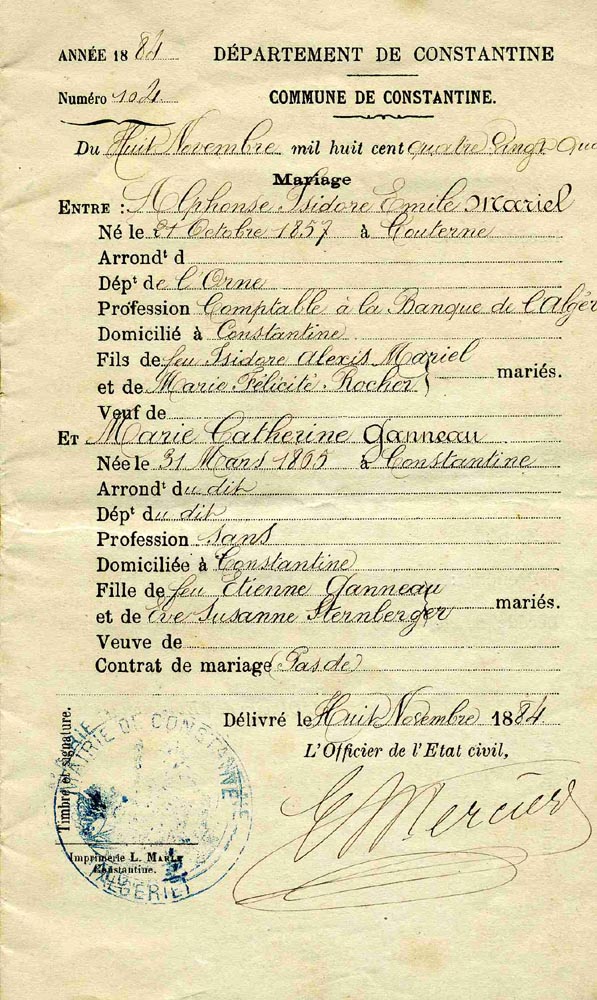 ANNÉE 1884 DÉPARTEMENT DE CONSTANTINE
Numéro 104 COMMUNE DE CONSTANTINE.
Du Huit Novembre mil huit cent quatre Vingt Qua
Mariage
ENTRE : Alphonse Isidore Emile Mariel
Né le 21 Octobre 1857 à Couterne
Arrondt d
Dépt de l'Orne
Profession Comptable à la Banque de l'Algér
Domicilié à Constantine
Fils de feu Isidore Alexis Mariel
et de Marie Félicité Rocher mariés.
Veuf de
ET Marie Catherine Ganneau
Née le 31 Mars 1865 à Constantine
Arrondt du dit
Dépt du dit
Profession Sans
Domiciliée à Constantine
Fille de feu Etienne Ganneau
et de Eve Susanne Sternberger mariés.
Veuve de
Contrat de mariage (Pas de)
Délivré le Huit Novembre 1884
L'Officier de l'Etat civil,
Timbre et signature.
MAIRIE DE CONSTANTINE
(ALGÉRIE)
E Mercier
Imprimerie L. MARLE
Constantine.